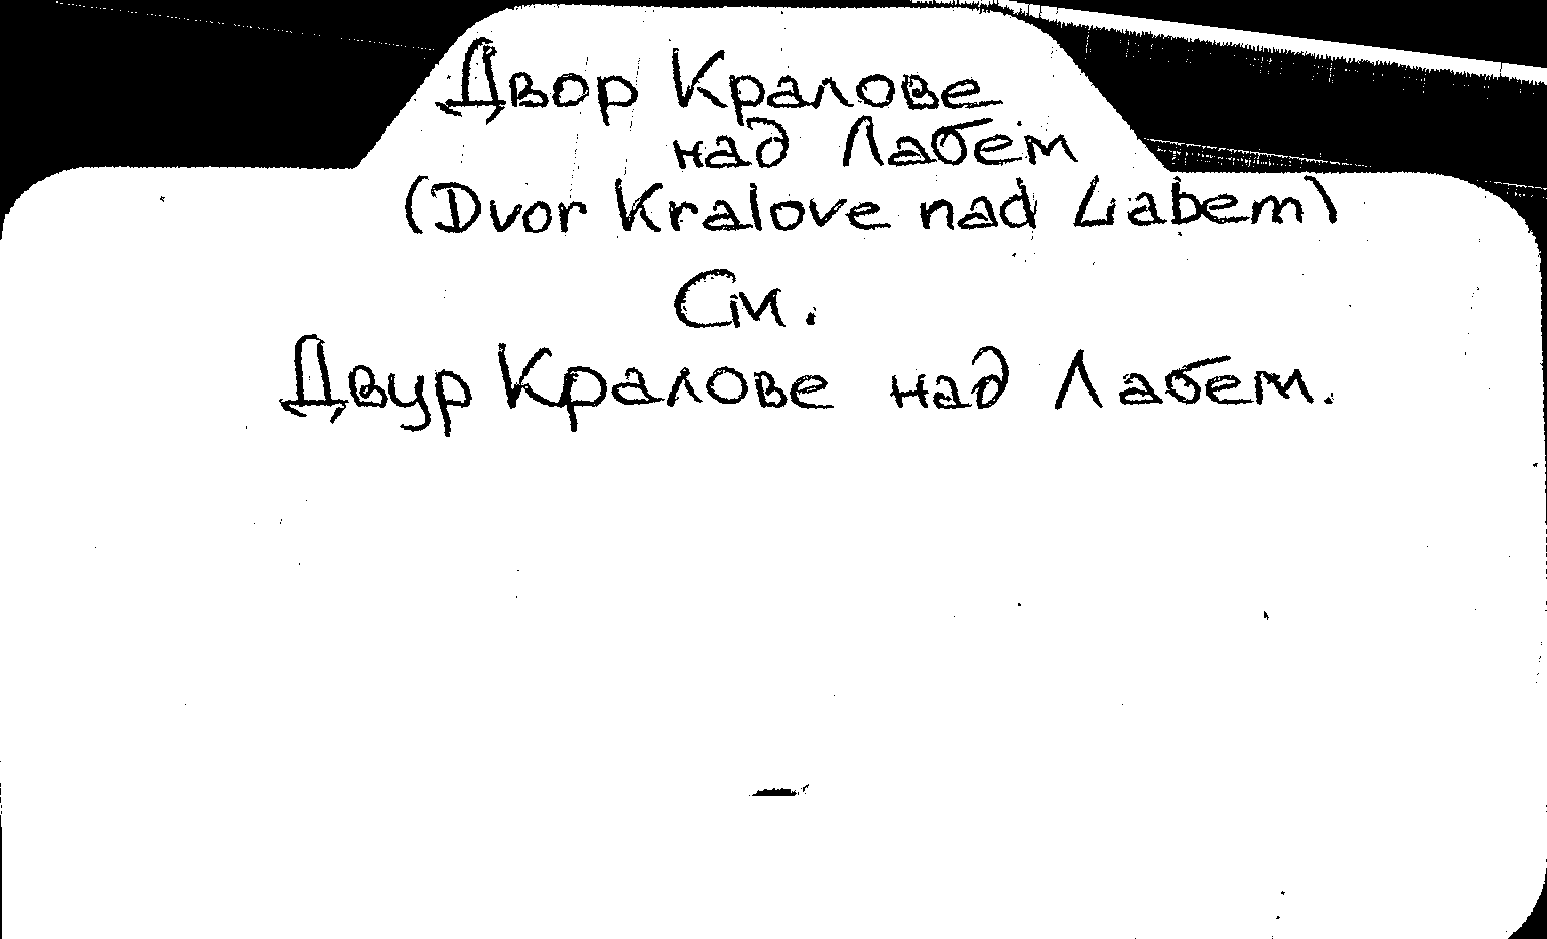 Двор Кралове
над Лабем
(Dvor Kralove nad Labem)
См.
Двур Кралове над Лабем.